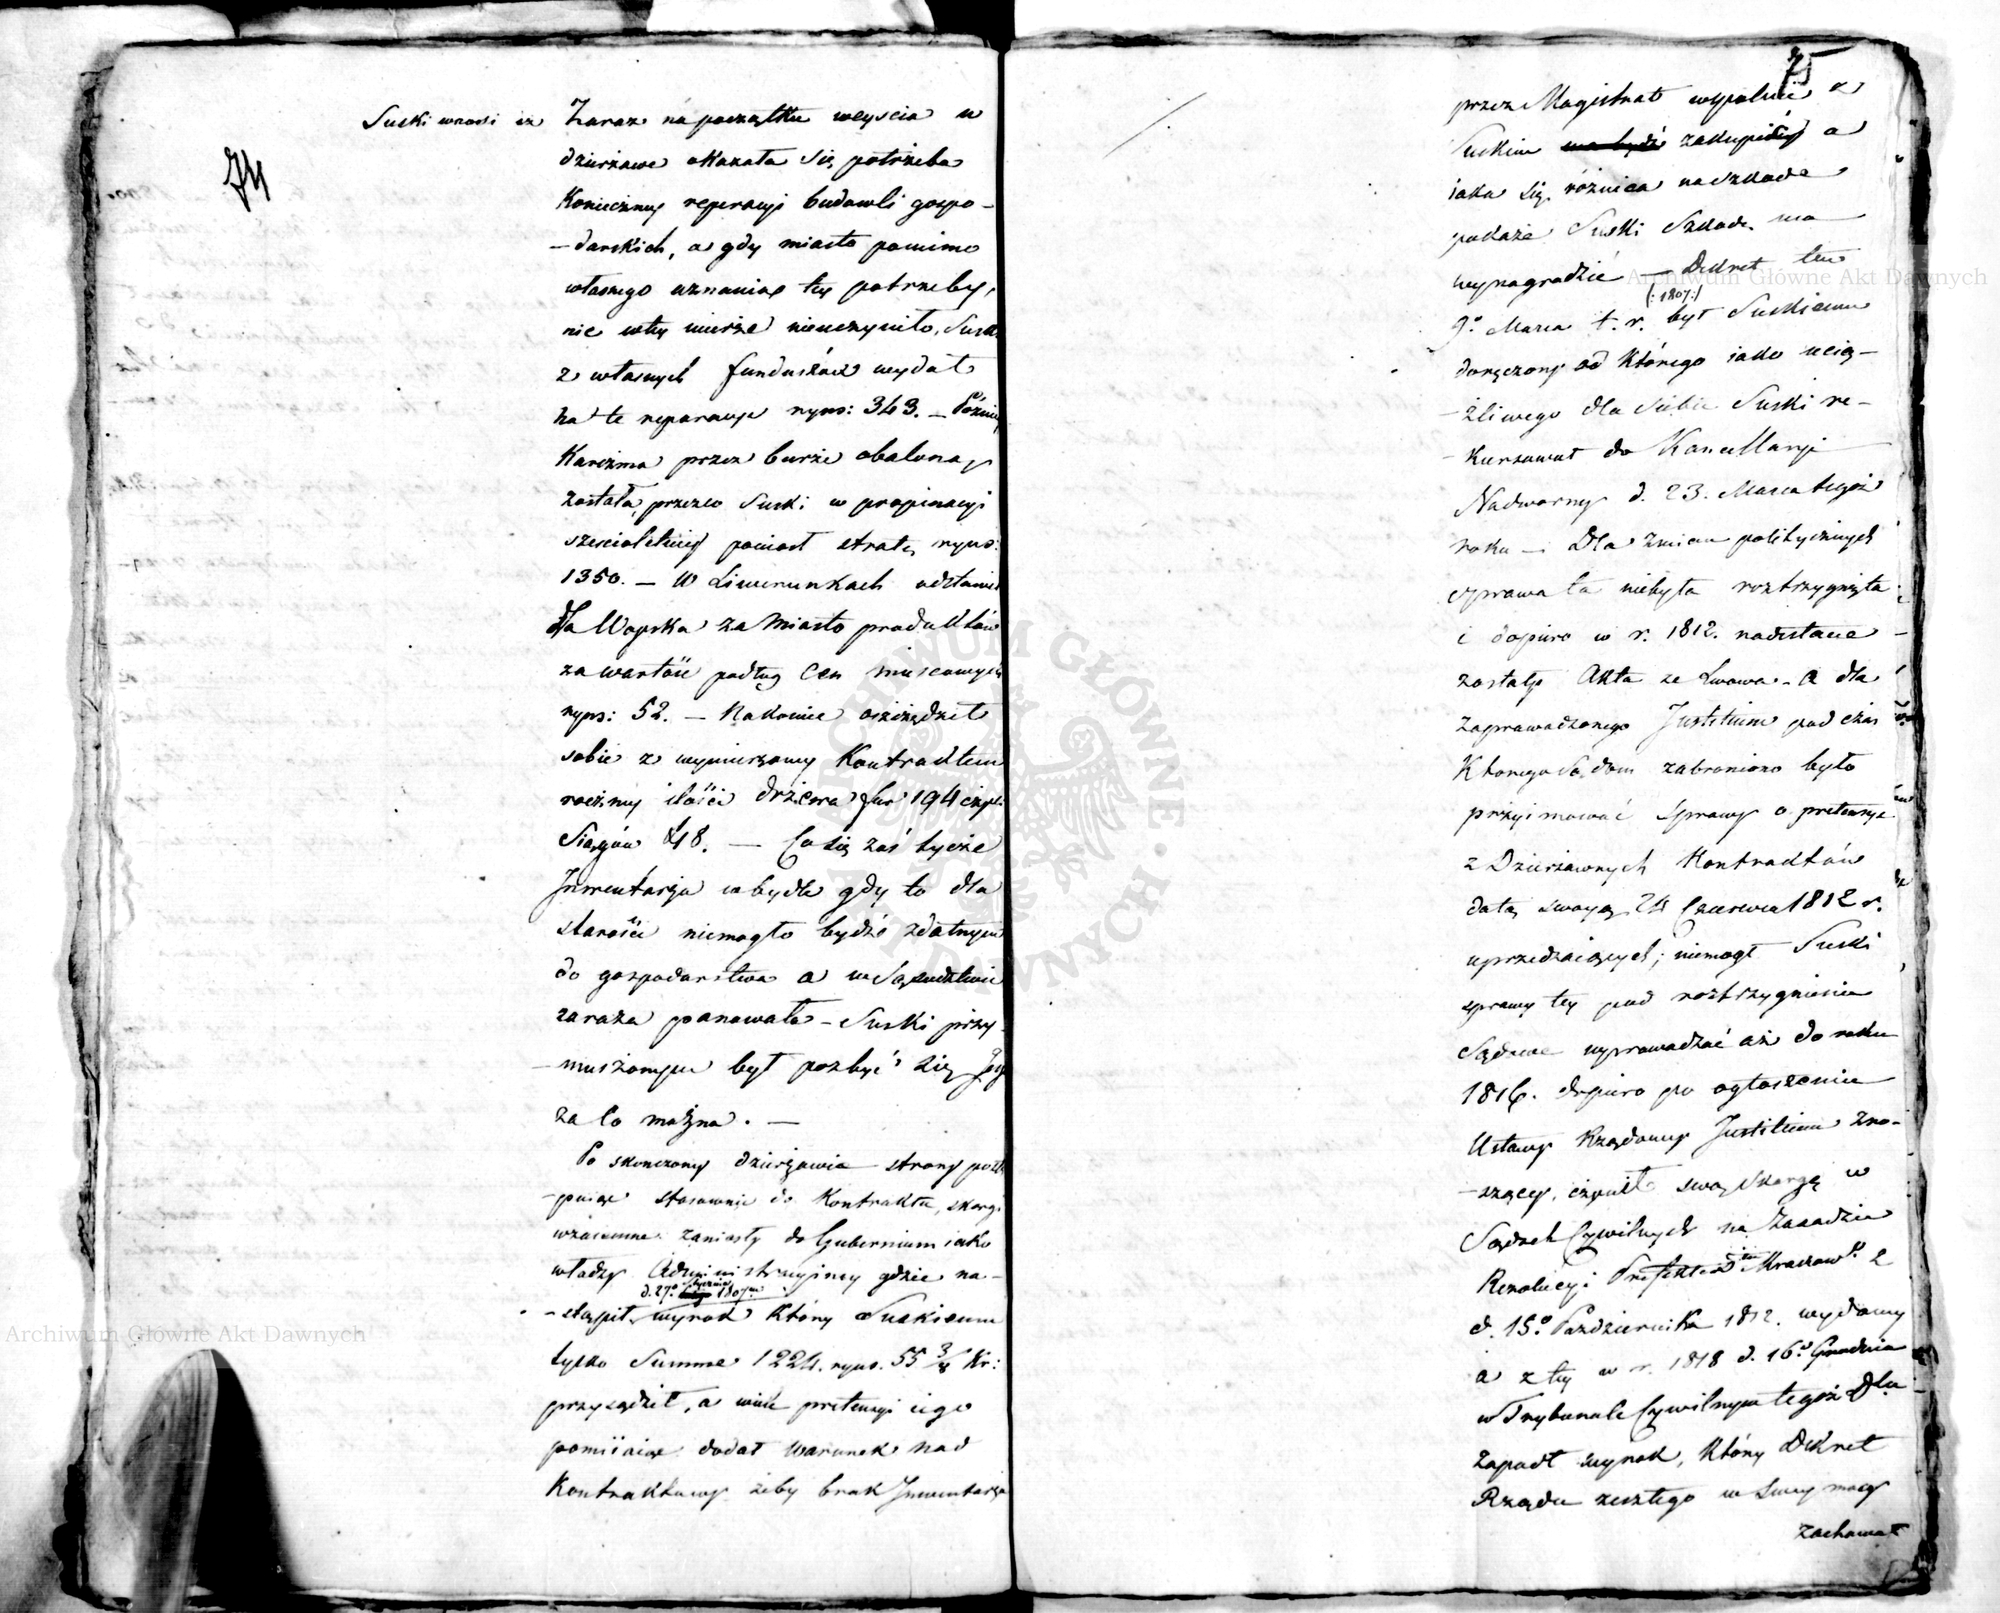 74
Suski wnosi iż Zaraz na początku weyscia w
dzierżawe okazała się potrzeba
Konieczney reperacyi budowli gospo-
-darskich, a gdy miasto pomimo
własnego uznania tey potrzeby,
nic wtey mierze nieuczyniło, Suski
z własnych funduszów wydał
na te reparacye ryns: 343. — Pozniey
Karczma przez burze obalona
została, przezco Suski w propinacyi
szescioletniey poniosł stratę ryns:
1350. — W Liwerunkach odstawił
dla Woyska za Miasto produktów
za wartość podług cen mieyscowych
ryns: 52. — Nakoniec oszczędził
sobie z wymierzoney Kontraktem
roczney ilości drzewa fur 194 czyli
Siągów 48. — Co się zaś tycze
Inwentarza w bydle gdy to dla
starości niemogło bydź zdatnym
do gospodarstwa a w Sąsiedztwie
zaraza panowała — Suski przy-
-muszonym był pozbyć się Jey
za co można. —
Po skonczoney dzierżawie strony postę-
-puiąc stosownie do Kontraktu, skargi
wzaiemne zaniosły do Gubernium iako
władzy Administracyiney gdzie na-
d. 27o Stycznia 1807mo
-stąpił wyrok który Suskiemu
tylko Summe 1224. ryns. 55 3/4 Kr:
przysądził, a wiele pretensyi iego
pomiiaiąc dodał warunek nad
Kontraktowy żeby brak Inwentarza
75
przez Magistrat wypełnić z
Suskim zakupiony a
iaka się różnica naszkode
pokaże Suski Szkode ma
wynagrodzić — Dekret ten
(:1807:)
9o Marca t. r. był Suskiemu
doręczony od którego iako ucią-
-żliwego dla siebie Suski re-
-kursował do Kancellaryi
Nadworney d. 23. Marca tegoż
roku — Dla zmian politycznych
sprawa ta niebyła roztrzygnięta
i dopiero w r. 1812. nadesłane
zostały Akta ze Lwowa — a dla
zaprowadzonego Justitium podczas
Którego Sądom zabroniono było
przyimować sprawy o pretensye
z Dzierżawnych Kontraktów
datę swoyą 24 Czerwca 1812 r.
uprzedzaiących; niemogł Suski
sprawy tey pod roztrzygnienie
Sądowe wyprowadzać aż do roku
1816. dopiero po ogłoszeniu
Ustawy Rządowey Justitium zno-
-szącey, czynił swą Skargę w
Sądach Cywilnych na Zasadzie
Rezolucyi Prefekta Dtu Krakowo. z
d. 15o Pazdziernika 1812. wydaney
a z tey w r. 1818 d. 16o Grudnia
w Trybunale Cywilnym tegoż Dtu
zapadł wyrok, który Dekret
Rządu zeszłego w swey mocy
zachował
Archiwum Główne Akt Dawnych
Archiwum Główne Akt Dawnych
ARCHIWUM GŁÓWNE AKT DAWNYCH